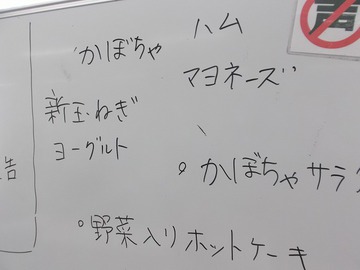 かぼちゃ
ハム
マヨネーズ
新玉ねぎ
ヨーグルト
。かぼちゃサラ
。野菜入りホットケーキ
声